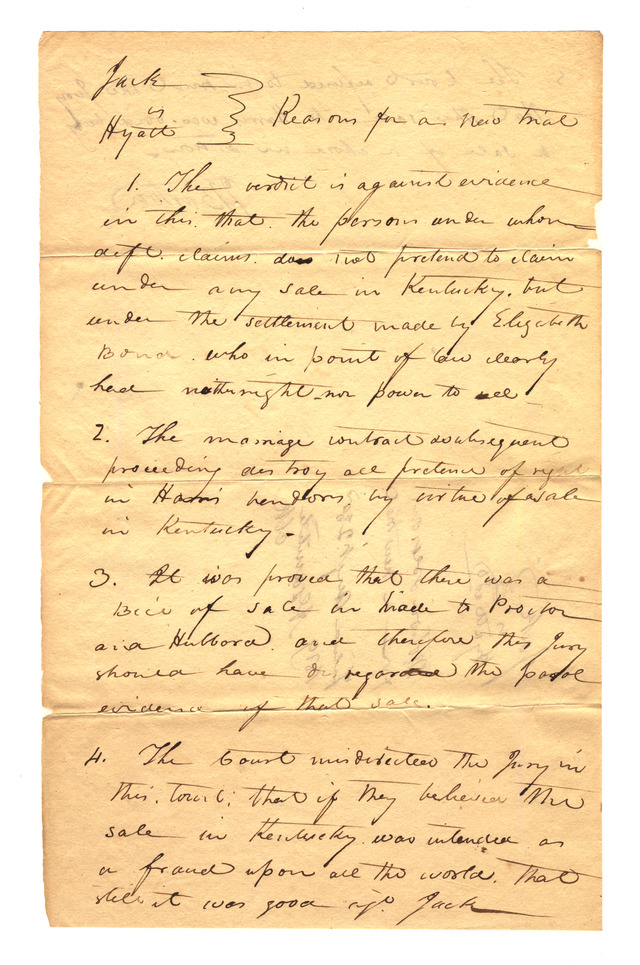 Jack
vs
Hyatt
Reasons for a new trial
1. The verdict is against evidence
in this. that the persons under whom
deft. claims. does not pretend to claim
under any sale in Kentucky. but
under the settlement made by Elizabeth
Bond. who in point of law clearly
had neither right nor power to sell
2. The marriage contract & subsequent
proceeding destroy all pretence of right
in Harris vendors by virtue of a sale
in Kentucky.
3. It was proved that there was a
Bill of sale in made to Proctor
and Hubbard. and therefore the Jury
should have disregarded the parol
evidence of that sale.
4. The Court misdirected the Jury in
this, to wit; that if they believed the
sale in Kentucky was intended as
a fraud upon all the world. that
still it was good agt. Jack